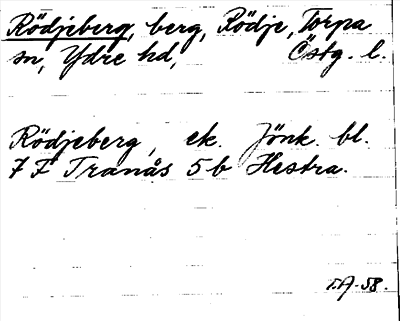 Rödjeberg, berg, Rödje, Torpa
sn, Ydre hd, Östg. l.
Rödjeberg, ek. Jönk. bl.
7 F Tranås 5 b Hestra.
T.A. 58.